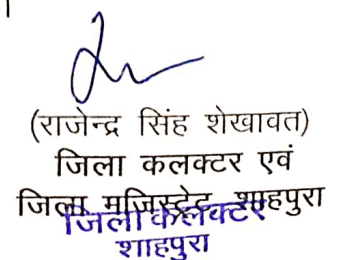 (राजेन्द्र सिंह शेखावत)
जिला कलक्टर एवं
जिला मजिस्ट्रेट, शाहपुरा
जिला कलक्टर
शाहपुरा